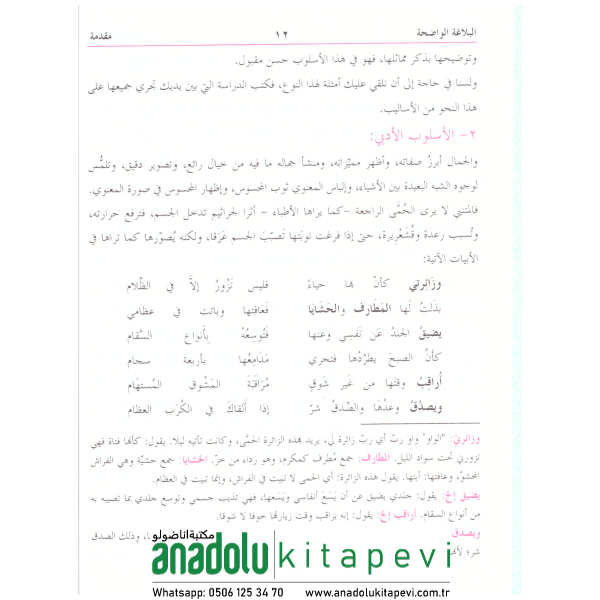 البلاغة الواضحة ١٢ مقدمة
وتوضيحها بذكر مماثلها، فهو في هذا الأسلوب حسن مقبول.
ولسنا في حاجة إلى أن نلقي عليك أمثلة لهذا النوع، فكتب الدراسة التي بين يديك تجري جميعها على
هذا النحو من الأساليب.
٢- الأسلوب الأدبي:
والجمال أبرزُ صفاته، وأظهر مميّزاته، ومنشأ جماله ما فيه من خيال رائع، وتصوير دقيق، وتلمُّس
لوجوه الشبه البعيدة بين الأشياء، وإلباس المعنوي ثوب المحسوس، وإظهار المحسوس في صورة المعنوي.
فالمتنبي لا يرى الحُمَّى الراجعة -كما يراها الأطباء - أثرا لجراثيم تدخل الجسم، فترفع حرارته،
وتُسبب رعدة وقُشَعْرِيرة، حتىّ إذا فرغت نوبَتها تَصبّبَ الجسم عَرَقا، ولكنه يُصوّرها كما تراها في
الأبيات الآتية:
وَزَائِرتي كأنّ بها حياءً فليس تَزُورُ إلاّ في الظَّلام
بذَلتُ لَها المَطَارف والحَشَايَا فَعَافتها وباتت في عظامي
يضيقُ الجلدُ عَن نَفسِي وعنها فَتُوسِعُهُ بِأَنواع السَّقام
كأنّ الصبحَ يطرُدُها فتجري مَدَامِعُها بأربعة سجام
أُراقِبُ وقتَها من غَير شَوقٍ مُرَاقَبَةَ المَشُوق المُستهَام
ويصدُقُ وعدُها والصِّدقُ شرّ إذا أَلقاكَ في الكُرَب العظام
وزائرتي: "الواو" واو ربّ أي ربّ زائرة لي، يريد بهذه الزائرة الحمّى، وكانت تأتيه ليلا. يقول: كأنّها فتاة فهي
تزورني تحت سواد الليل. المطارف: جمع مُطرف كمكرم، وهو رداء من خزّ. الحشايا: جمع حشيّة وهي الفراش
المحشوّ، وعافتها: أبتها. يقول هذه الزائرة: أي الحمى لا تبيت في الفراش، وإنما تبيت في العظام.
يضيق إلخ: يقول: جلدي يضيق عن أن يَسَعَ أنفاسي ويَسَعها، فهي تذيب جسمي وتوسع جلدي بما تصيبه به
من أنواع السقام. أراقب إلخ: يقول: إنه يراقب وقت زيارتها خوفا لا شوقا.
ويصدق وذلك الصدق
شر؛ لأنها
مكتبة اناضولو
anadolu kitapevi
Whatsapp: 0506 125 34 70 www.anadolukitapevi.com.tr